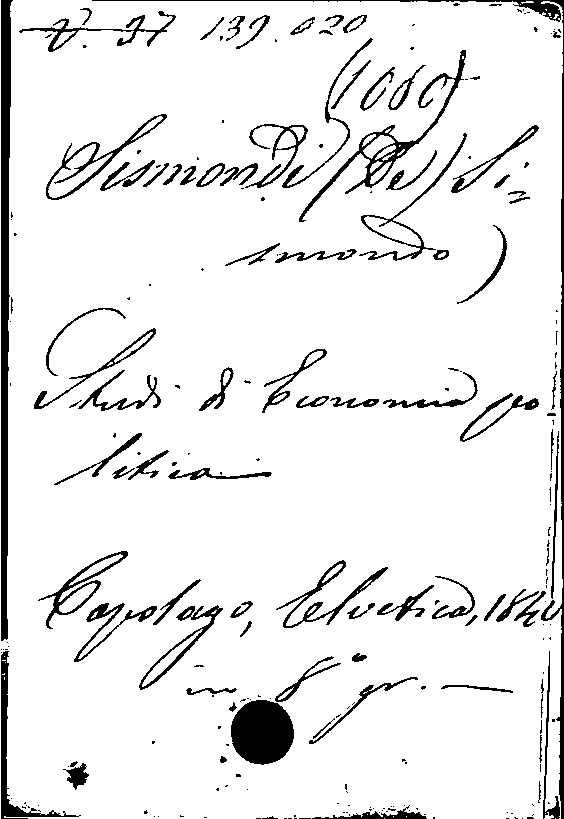 V. 37 139.020
(1080)
Sismondi (De) Si=
smondo)
Studi di Economia po-
litica
Capolago, Elvetica, 1840
in 8° gr. —